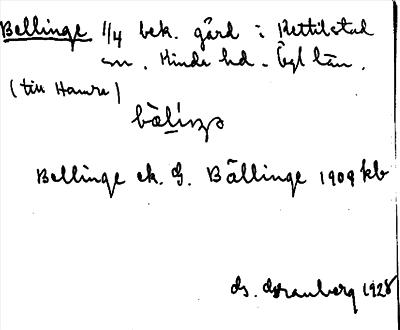 Bellinge 1/4 bek. gård i Kettilstad
sn. Kinda hd. Ögl län.
(till Hamra)
Bellinge ek. G. Bällinge 1909 kb
G. Granberg 1928